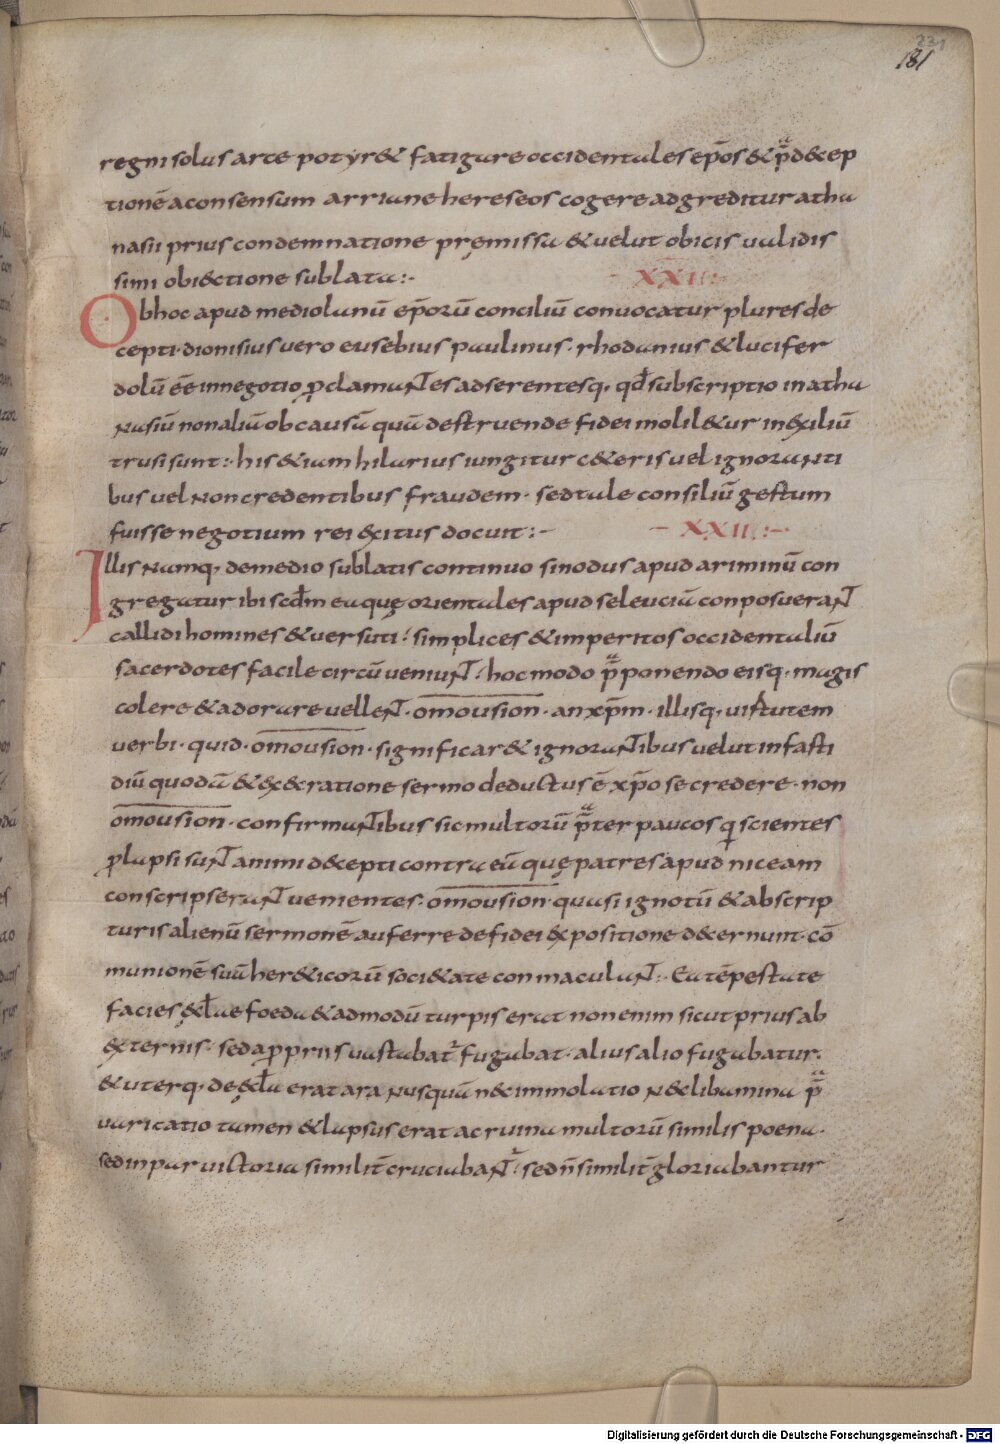 231
181
regni solus arte potyr& fatigare occidentales ep̄os & p̄d&cep
tionē aconsensum arriane hereseos cogere adgreditur atha
nasii prius condemnatione pręmissa & velut obicis validis
simi obi&ctione sublata:-
- XXI:-
Obhoc apud mediolanū ep̄orū conciliū convocatur plures de
cepti· dionisius vero eusebius paulinus· rhodanius & lucifer
dolū eē innegotio ꝓclamantes adserentesq, qđ subscriptio inatha
nasiū nonaliū ob causā quā destruende fidei molil&ur in exiliū
trusi sunt:· his &iam hilarius iungitur c&eris vel ignoranti
bus vel non credentibus fraudem· sed tale consiliū gestum
fuisse negotium rei exitus docuit:-
- XXII:-
Illis namq, demedio sublatis continuo sinodus apud ariminū con
gregatur ibi scđm ea quę orientales apud seleuciā conposuerant
callidi homines & versuti: simplices & imperitos occidentaliū
sacerdotes facile circūveniunt: hoc modo p̄ponendo eisq· magis
colere & adorare vellent· omousion· an xp̄m· illisq, virtutem
verbi· quid· omousion· significar& ignorantibus velut infasti
diū quodā & execratione sermo deductus ē xp̄o se credere· non
omousion· confirmantibus sic multorū p̄ter paucos qi scientes
ꝓlapsi sunt animi d&cepti contra eū quę patres apud niceam
conscripserant venientes· omousion quasi ignotū & abscrip
turis alienū sermonē auferre defidei expositione d&cernunt· cō
munionē suā her&icorū soci&ate conmaculant:· Ea tēpestate
facies ęcl̄ae foeda & admodū turpis erat non enim sicut prius ab
externis· sed apropriis vastabat᷑ fugabat· alius alio fugabatur·
& uterq· de ęcl̄a erat ara nusquā n&c immolatio n&c libamina p̄
varicatio tamen & lapsus erat ac ruina multorū similis poena·
sed inpar victoria similit̄ cruciabant᷑: sed n̄ similit̄ gloriabantur
Digitalisierung gefördert durch die Deutsche Forschungsgemeinschaft - DFG